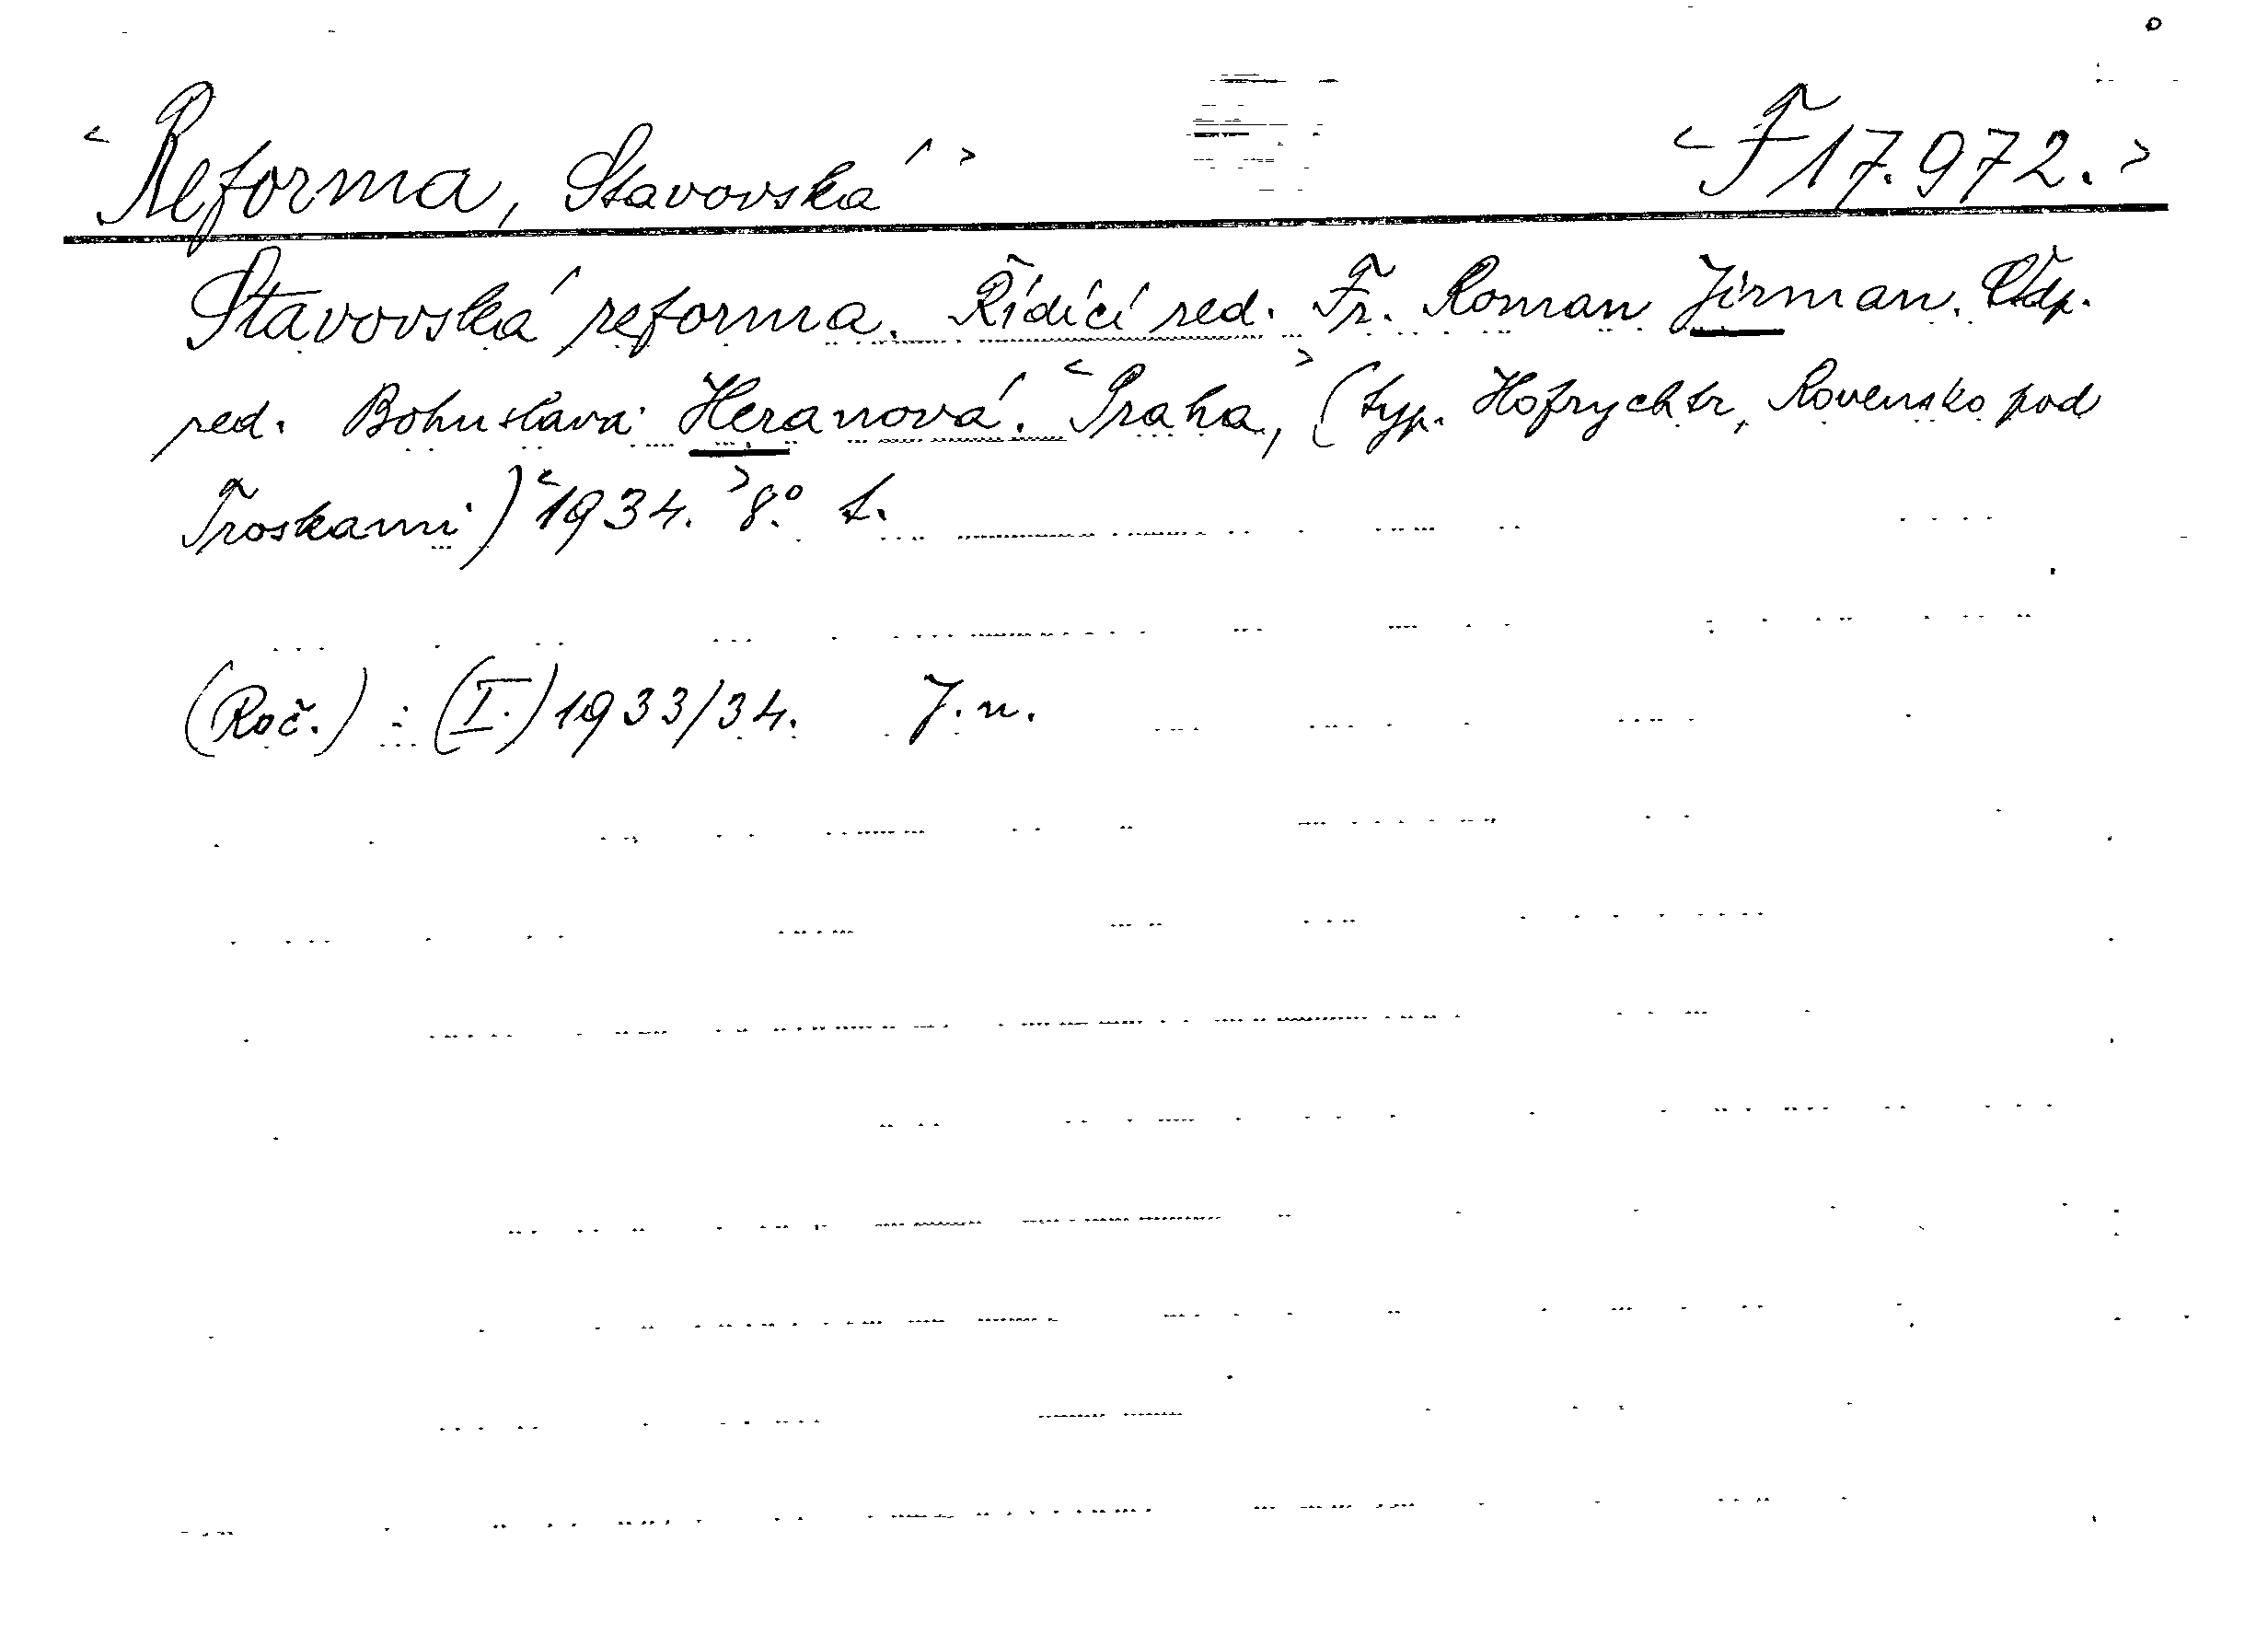 <Reforma, Stavovská> <F 17.972.>
Stavovská reforma. Řídící red. Fr. Roman Jirman. Odp.
red. Bohuslava Heranová. <Praha,> (typ. Hofrychtr, Rovensko pod
Troskami) <1934.> 8.°
(Roč.) : (I.) 1933/34. J. n.